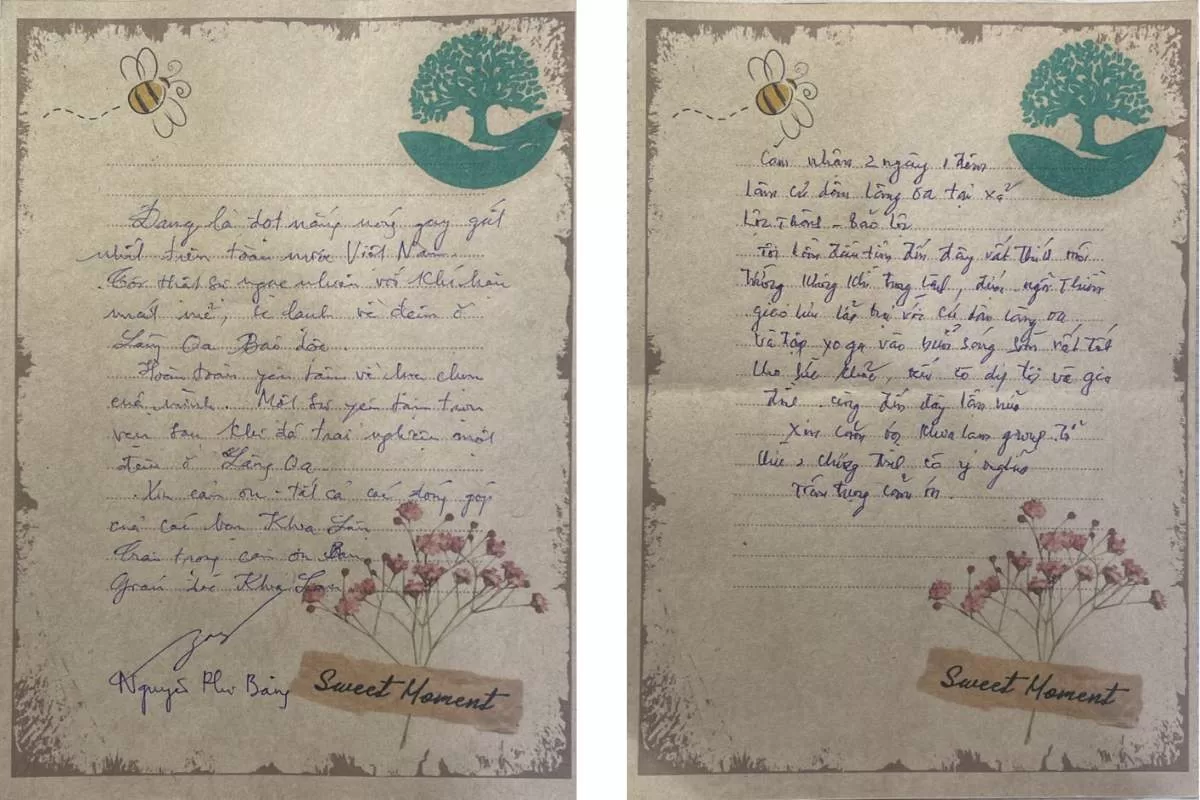 Đang là đợt nắng nóng gay gắt
nhất trên toàn nước Việt Nam.
Tôi thật sự ngạc nhiên với khí hậu
mát mẻ, se lạnh về đêm ở
Làng Oa Bảo Lộc.
Hoàn toàn yên tâm về lựa chọn
của mình. Một sự yên tâm trọn
vẹn sau khi đã trải nghiệm một
đêm ở Làng Oa
Xin cảm ơn tất cả các đóng góp
của các bạn Khoa Lâm
Trân trọng cảm ơn Ban
Giám đốc Khoa Lâm
Nguyễn Phư Bảng
Sweet Moment
Cảm nhận 2 ngày 1 đêm
làm cư dân làng oa tại xã
Lộc Thành - Bảo Lộc
Tôi lần đầu tiên đến đây rất thích môi
trường không khí trong lành, đêm ngồi thiền
giao lưu lửa trại với cư dân làng oa
và tập yoga vào buổi sáng sớm rất tốt
cho sức khoẻ, nếu có dịp tôi và gia
đình cùng đến đây lần nữa
Xin cảm ơn Khoa Lam group tổ
chức chương trình có ý nghĩa
Trân trọng cảm ơn.
Sweet Moment